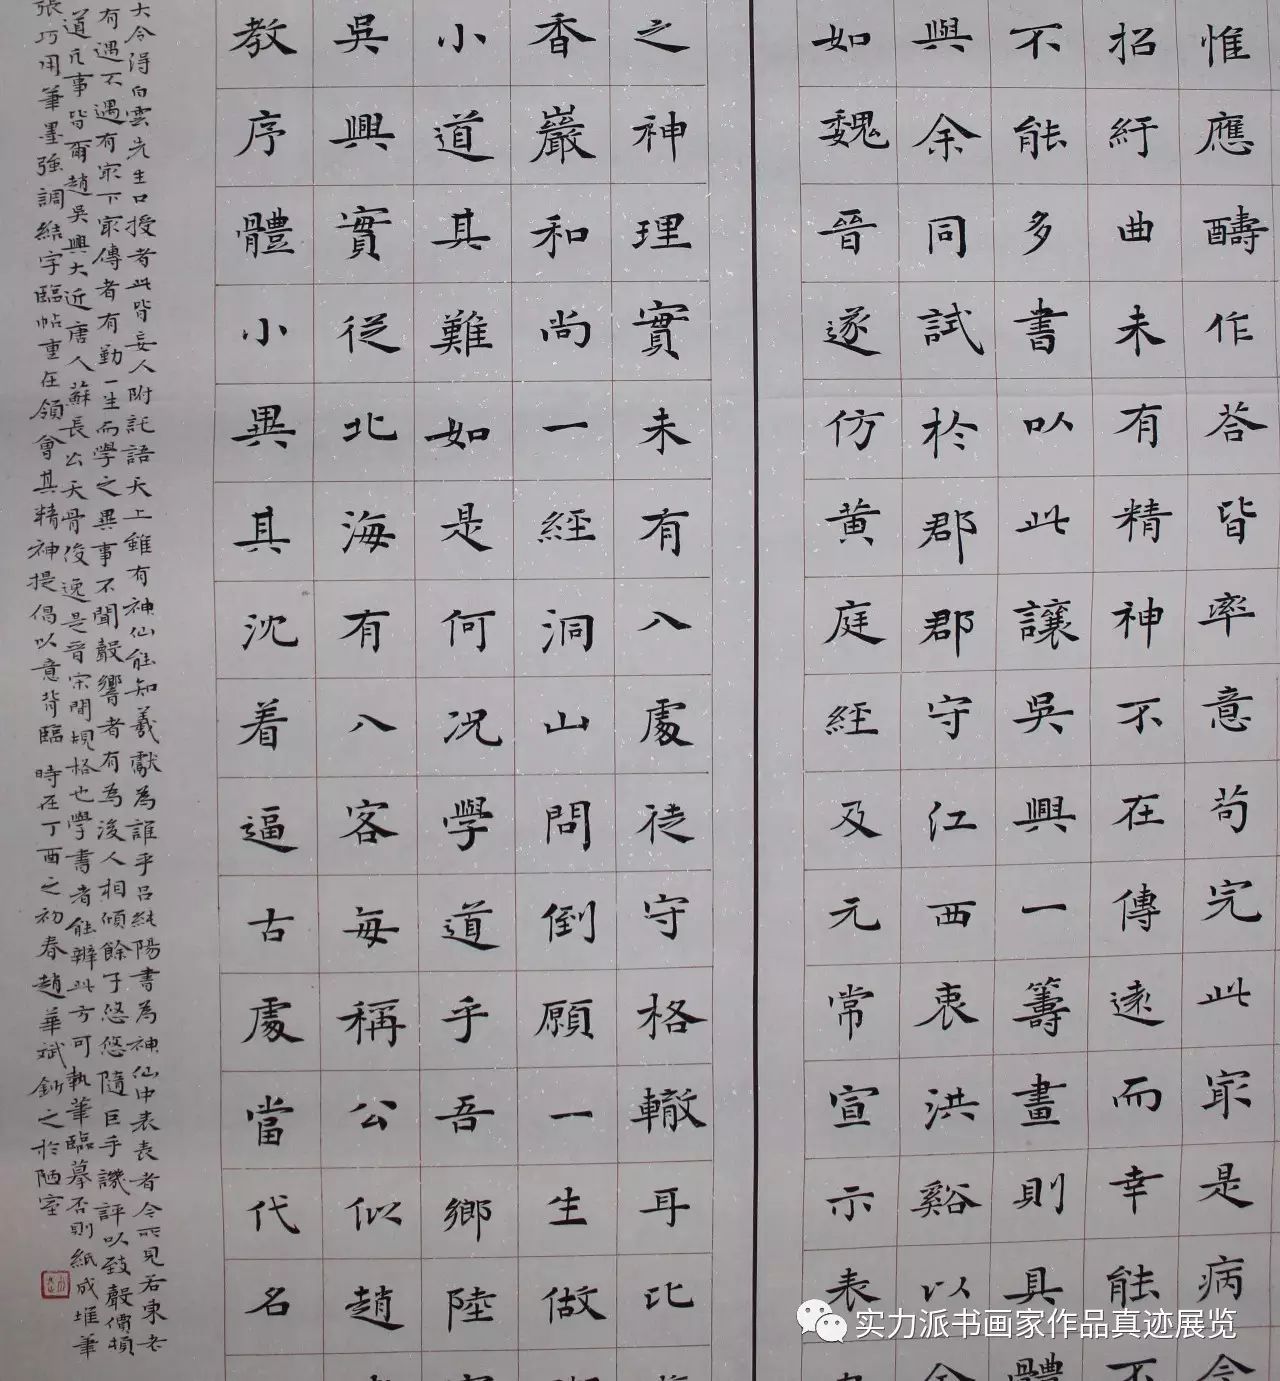 惟應醻作荅皆率意苟完此㝡是病今
招紆曲未有精神不在傳遠而幸能不
不能多書以此讓吳興一籌畫則具體
興余同試於郡郡守江西衷洪谿以余
如魏晉遂仿黄庭經及元常宣示表
之神理實未有入處徒守格轍耳比
香巖和尚一經洞山問倒願一生做
小道其難如是何况學道乎吾鄉陸
吳興實從北海有入客每稱公似趙
教序體小異其沈着逼古處當代名
大令得白雲先生口授者此皆妄人附託語天上雖有神仙能知羲獻為誰乎吕純陽書為神仙中表表者今所見若東老
有遇不遇有㝡下㝡傳者有勤一生而學之異事不聞聲響者有為後人相傾餘子悠悠隨巨手譏評以致聲價頓
道凡事皆爾趙吳興大近唐人蘇長公天骨俊逸是晉宋間規格也學書者能辨此方可執筆臨摹否則紙成堆筆
張巧用筆墨強調結字臨帖重在領會其精神提倡以意背臨 時在丁酉之初春趙華斌鈔之於陋室
实力派书画家作品真迹展览